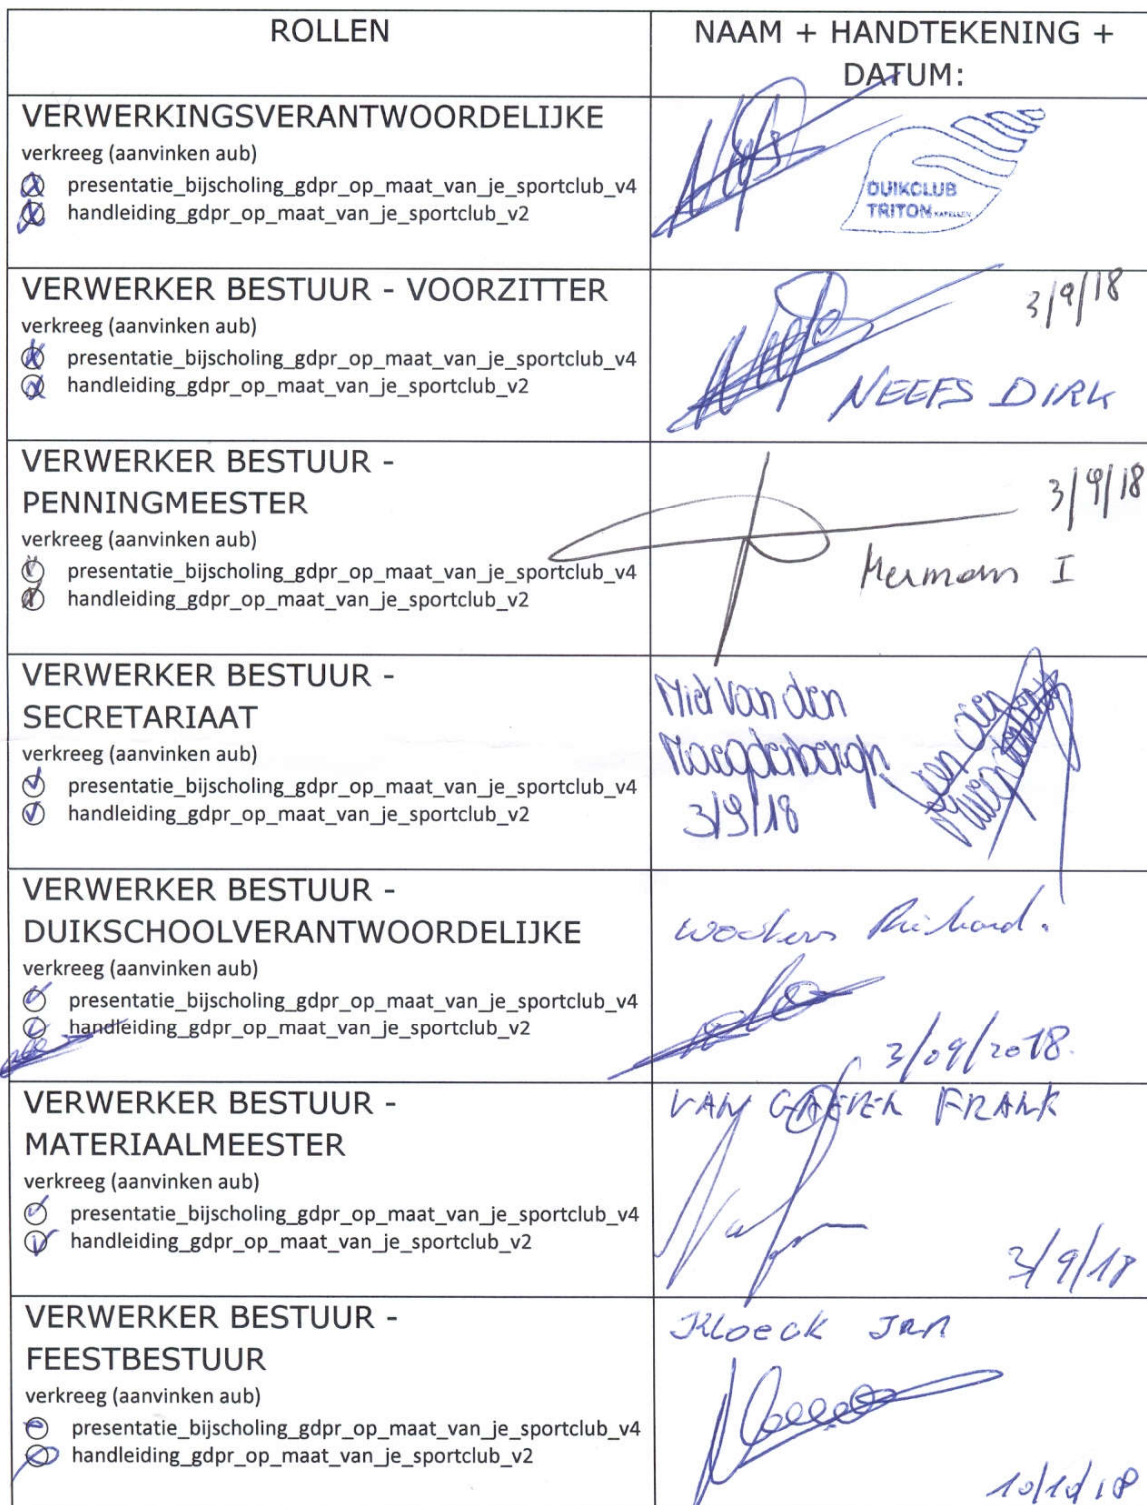 ROLLEN
NAAM + HANDTEKENING +
DATUM:
VERWERKINGSVERANTWOORDELIJKE
verkreeg (aanvinken aub)
presentatie_bijscholing_gdpr_op_maat_van_je_sportclub_v4
handleiding_gdpr_op_maat_van_je_sportclub_v2
DUIKCLUB
TRITON KAPELLEN
VERWERKER BESTUUR - VOORZITTER
verkreeg (aanvinken aub)
presentatie_bijscholing_gdpr_op_maat_van_je_sportclub_v4
handleiding_gdpr_op_maat_van_je_sportclub_v2
3/9/18
NEEFS DIRK
VERWERKER BESTUUR -
PENNINGMEESTER
verkreeg (aanvinken aub)
presentatie_bijscholing_gdpr_op_maat_van_je_sportclub_v4
handleiding_gdpr_op_maat_van_je_sportclub_v2
3/9/18
Mermans I
VERWERKER BESTUUR -
SECRETARIAAT
verkreeg (aanvinken aub)
presentatie_bijscholing_gdpr_op_maat_van_je_sportclub_v4
handleiding_gdpr_op_maat_van_je_sportclub_v2
Van den
3/9/18
VERWERKER BESTUUR -
DUIKSCHOOLVERANTWOORDELIJKE
verkreeg (aanvinken aub)
presentatie_bijscholing_gdpr_op_maat_van_je_sportclub_v4
handleiding_gdpr_op_maat_van_je_sportclub_v2
Richard.
3/09/2018.
VERWERKER BESTUUR -
MATERIAALMEESTER
verkreeg (aanvinken aub)
presentatie_bijscholing_gdpr_op_maat_van_je_sportclub_v4
handleiding_gdpr_op_maat_van_je_sportclub_v2
VAN GAEVER FRANK
3/9/18
VERWERKER BESTUUR -
FEESTBESTUUR
verkreeg (aanvinken aub)
presentatie_bijscholing_gdpr_op_maat_van_je_sportclub_v4
handleiding_gdpr_op_maat_van_je_sportclub_v2
Kloeck JAN
10/10/18